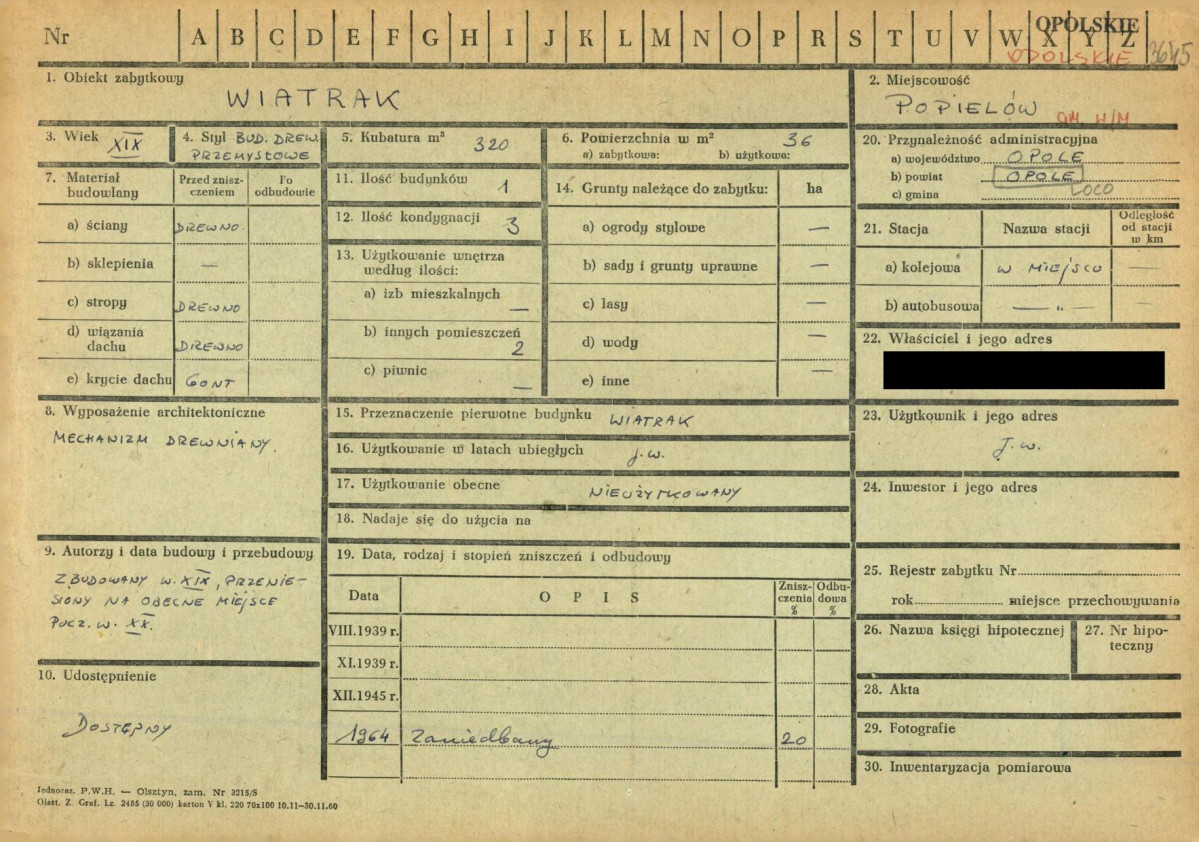 Nr A B C D E F G H I J K L M N O P R S T U V W X Y Z
OPOLSKIE
OPOLSKIE 3645
1. Obiekt zabytkowy
WIATRAK
2. Miejscowość
POPIELÓW
3. Wiek XIX
4. Styl BUD. DREW.
PRZEMYSŁOWE
5. Kubatura m³ 320
6. Powierzchnia w m² 36
a) zabytkowa: b) użytkowa:
20. Przynależność administracyjna
a) województwo OPOLE
b) powiat OPOLE
c) gmina LOCO
7. Materiał
budowlany
Przed znisz-
czeniem
Po
odbudowie
a) ściany DREWNO
b) sklepienia —
c) stropy DREWNO
d) wiązania
dachu DREWNO
e) krycie dachu GONT
11. Ilość budynków 1
12. Ilość kondygnacji 3
13. Użytkowanie wnętrza
według ilości:
a) izb mieszkalnych —
b) innych pomieszczeń
2
c) piwnic —
14. Grunty należące do zabytku: ha
a) ogrody stylowe —
b) sady i grunty uprawne —
c) lasy —
d) wody —
e) inne —
21. Stacja Nazwa stacji
Odległość
od stacji
w km
a) kolejowa W MIEJSCU —
b) autobusowa — „ — —
22. Właściciel i jego adres
8. Wyposażenie architektoniczne
MECHANIZM DREWNIANY.
15. Przeznaczenie pierwotne budynku WIATRAK
16. Użytkowanie w latach ubiegłych j.w.
17. Użytkowanie obecne NIEUŻYTKOWANY
18. Nadaje się do użycia na
23. Użytkownik i jego adres
J.w.
24. Inwestor i jego adres
9. Autorzy i data budowy i przebudowy
ZBUDOWANY W. XIX, PRZENIE-
SIONY NA OBECNE MIEJSCE
POCZ. W. XX.
19. Data, rodzaj i stopień zniszczeń i odbudowy
Data OPIS
Znisz-
czenia
%
Odbu-
dowa
%
VIII.1939 r.
XI.1939 r.
XII.1945 r.
1964 Zaniedbany 20
25. Rejestr zabytku Nr
rok miejsce przechowywania
26. Nazwa księgi hipotecznej
27. Nr hipo-
teczny
10. Udostępnienie
DOSTĘPNY
28. Akta
29. Fotografie
30. Inwentaryzacja pomiarowa
Jednoraz. P.W.H. — Olsztyn, zam. Nr 3215/S
Olszt. Z. Graf. Lz. 2485 (30 000) karton V kl. 220 70x100 10.11—30.11.60